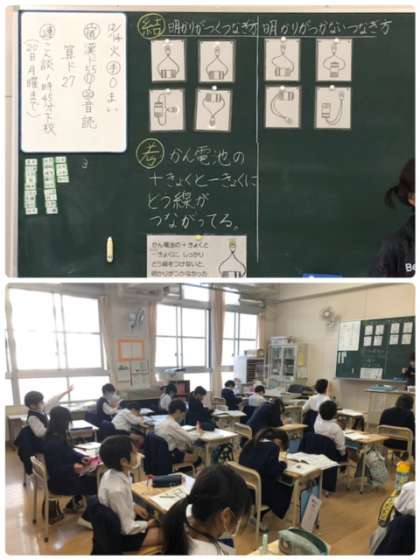 12/14 火 0 まい
宿 漢ド55 音読
算ド27
連 こん談 1時45分下校
20日月曜まで
結 明かりがつくつなぎ方
明かりがつかないつなぎ方
考 かん電池の
+きょくと-きょくに
どう線が
つながってる。
かん電池の+きょくと
-きょくに、しっかり
どう線をつけないと、
明かりがつかなかった